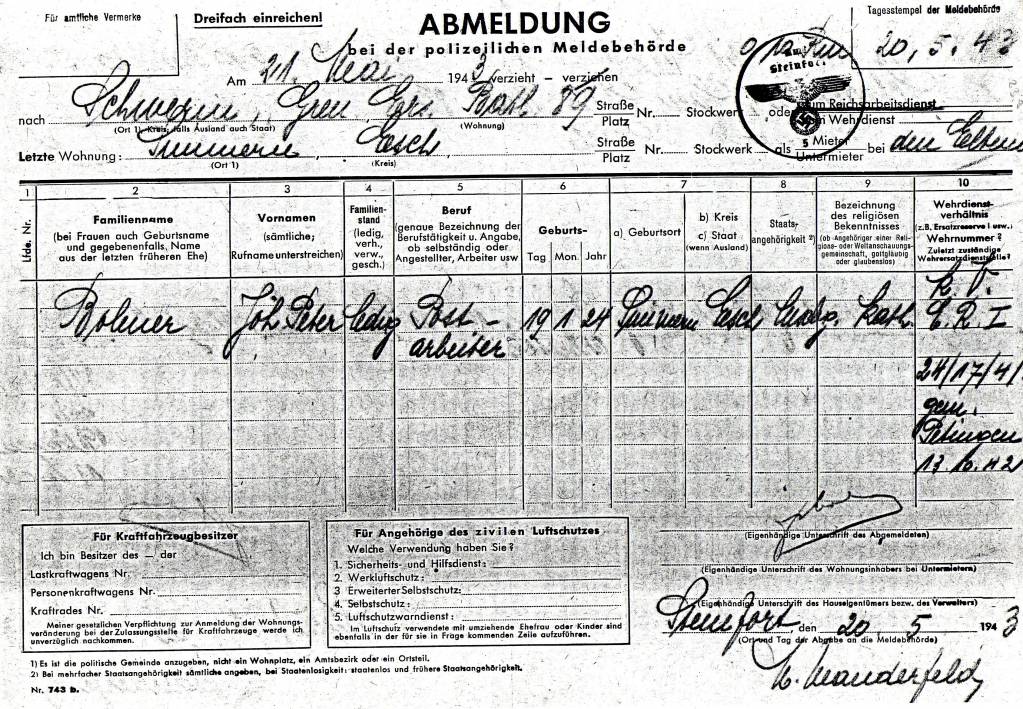 Für amtliche Vermerke
Dreifach einreichen!
ABMELDUNG
bei der polizeilichen Meldebehörde
Tagesstempel der Meldebehörde
20. 5. 43
Steinfort
Am 21. Mai 1943 verzieht – verziehen
nach Schwerin, Gren. Ers. Batl. 89 Straße Platz Nr. Stockwerk oder zum Reichsarbeitsdienst zum Wehrdienst
(Ort 1), Kreis, falls Ausland auch Staat) (Wohnung)
Letzte Wohnung: Simmern, Esch, Straße Platz Nr. Stockwerk als Mieter Untermieter bei den Eltern
(Ort 1) (Kreis)
1 2 3 4 5 6 7 8 9 10
Lfde. Nr.
Familienname
(bei Frauen auch Geburtsname
und gegebenenfalls, Name
aus der letzten früheren Ehe)
Vornamen
(sämtliche;
Rufname unterstreichen)
Familien-
stand
(ledig,
verh.,
verw.,
gesch.)
Beruf
(genaue Bezeichnung der
Berufstätigkeit u. Angabe,
ob selbständig oder
Angestellter, Arbeiter usw
Geburts-
Tag Mon. Jahr
a) Geburtsort
b) Kreis
c) Staat
(wenn Ausland)
Staats-
angehörigkeit 2)
Bezeichnung
des religiösen
Bekenntnisses
(ob Angehöriger einer Reli-
gions- oder Weltanschauungs-
gemeinschaft, gottgläubig
oder glaubenslos)
Wehrdienst-
verhältnis
(z.B. Ersatzreserve I usw.)
Wehrnummer?
Zuletzt zuständige
Wehrersatzdienststelle?
k. V.
Bohmer Joh. Peter ledig Post- 19 1 24 Simmern Esch Kath. E. R. I
arbeiter
24/17/4/
gem.
Petingen
17. 10. 42
Für Kraftfahrzeugbesitzer
Ich bin Besitzer des – der
Lastkraftwagens Nr.
Personenkraftwagens Nr.
Kraftrades Nr.
Meiner gesetzlichen Verpflichtung zur Anmeldung der Wohnungs-
veränderung bei der Zulassungsstelle für Kraftfahrzeuge werde ich
unverzüglich nachkommen.
Für Angehörige des zivilen Luftschutzes
Welche Verwendung haben Sie?
1. Sicherheits- und Hilfsdienst:
2. Werkluftschutz:
3 Erweiterter Selbstschutz:
4. Selbstschutz:
5. Luftschutzwarndienst:
Im Luftschutz verwendete mit umziehende Ehefrau oder Kinder sind
ebenfalls in der für sie in Frage kommenden Zeile aufzuführen.
(Eigenhändige Unterschrift des Abgemeldeten)
(Eigenhändige Unterschrift des Wohnungsinhabers bei Untermietern)
(Eigenhändige Unterschrift des Hauseigentümers bezw. des Verwalters)
Steinfort, den 20 5 1943
(Ort und Tag der Abgabe an die Meldebehörde)
N. Manderfeld
1) Es ist die politische Gemeinde anzugeben, nicht ein Wohnplatz, ein Amtsbezirk oder ein Ortsteil.
2) Bei mehrfacher Staatsangehörigkeit sämtliche angeben, bei Staatenlosigkeit: staatenlos und frühere Staatsangehörigkeit.
Nr. 743 b.